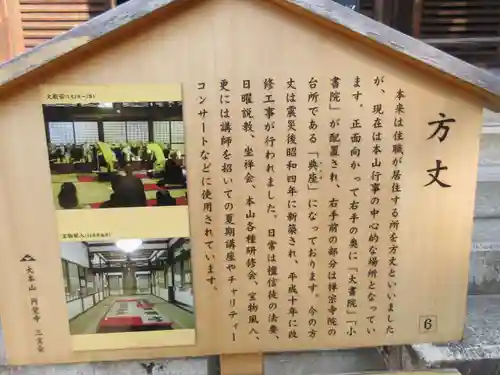 方丈
本来は住職が居住する所を方丈といいました
が、現在は本山行事の中心的な場所となってい
ます。正面向かって右手の奥に「大書院」「小
書院」が配置され、右手前の部分は禅宗寺院の
台所である「典座」になっております。今の方
丈は震災後昭和四年に新築され、平成十年に改
修工事が行われました。日常は檀信徒の法要、
日曜説教、坐禅会、本山各種研修会、宝物風入、
更には講師を招いての夏期講座やチャリティー
コンサートなどに使用されています。
大本山 円覚寺
6